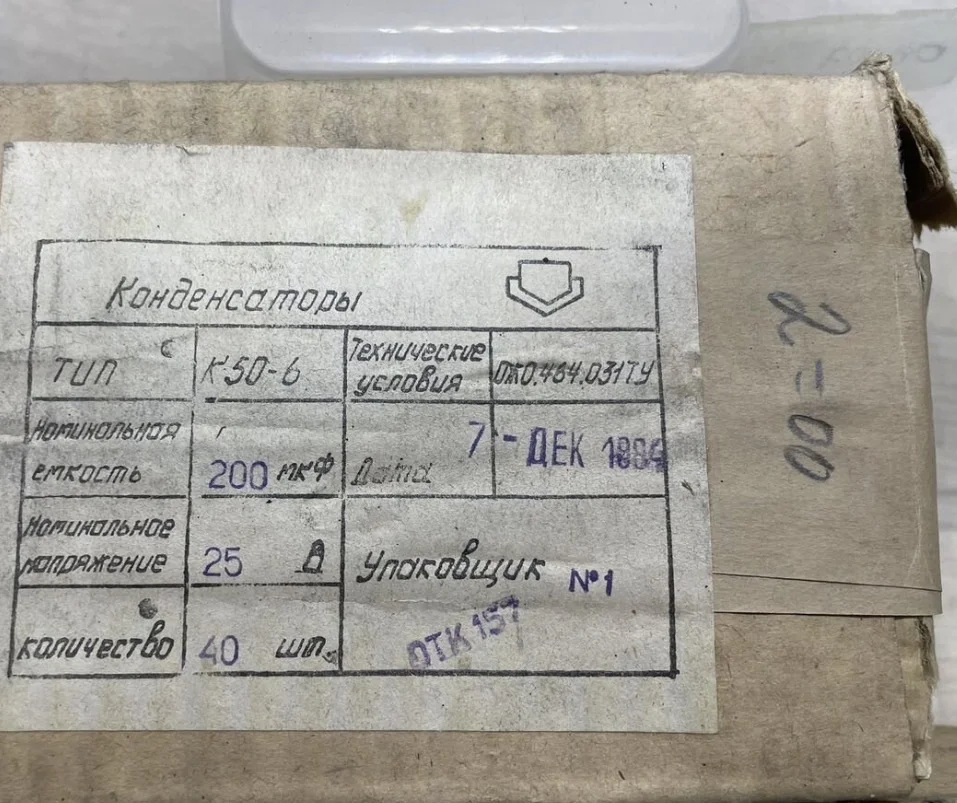 Конденсаторы
тип К50-6 Технические условия ОЖ0.464.031ТУ
Номинальная емкость 200 мкФ Дата 7-ДЕК
Номинальное напряжение 25 В Упаковщик №1
количество 40 шт. ОТК 157
2=00